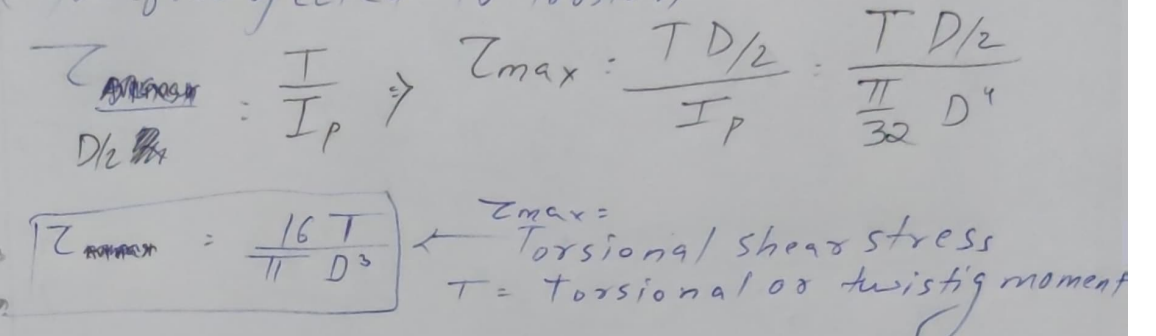 τ / D/2 = T / Ip ⇒ τmax = T D/2 / Ip = T D/2 / π/32 D⁴
τ = 16 T / π D³ ← τmax =
Torsional shear stress
T = torsional or twistig moment